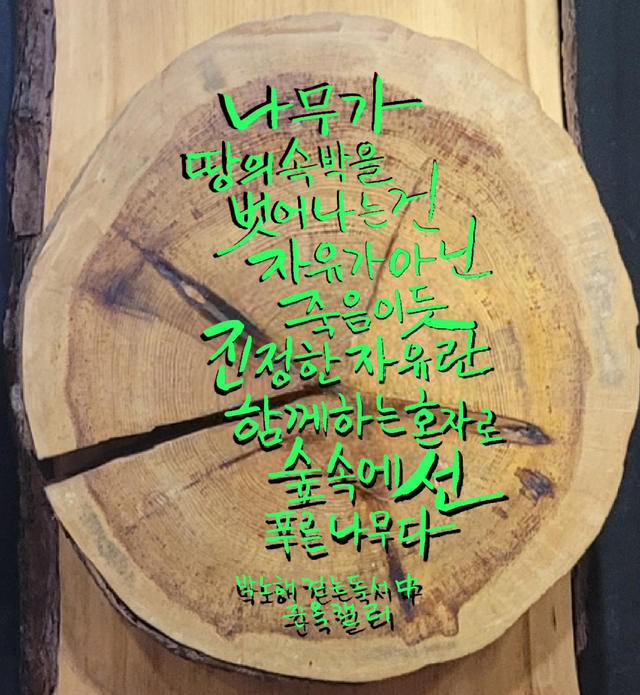 나무가
땅의 속박을
벗어나는 건
자유가 아닌
죽음이듯
진정한 자유란
함께하는 혼자로
숲속에 선
푸른 나무다
박노해 걷는독서 中
준옥캘리